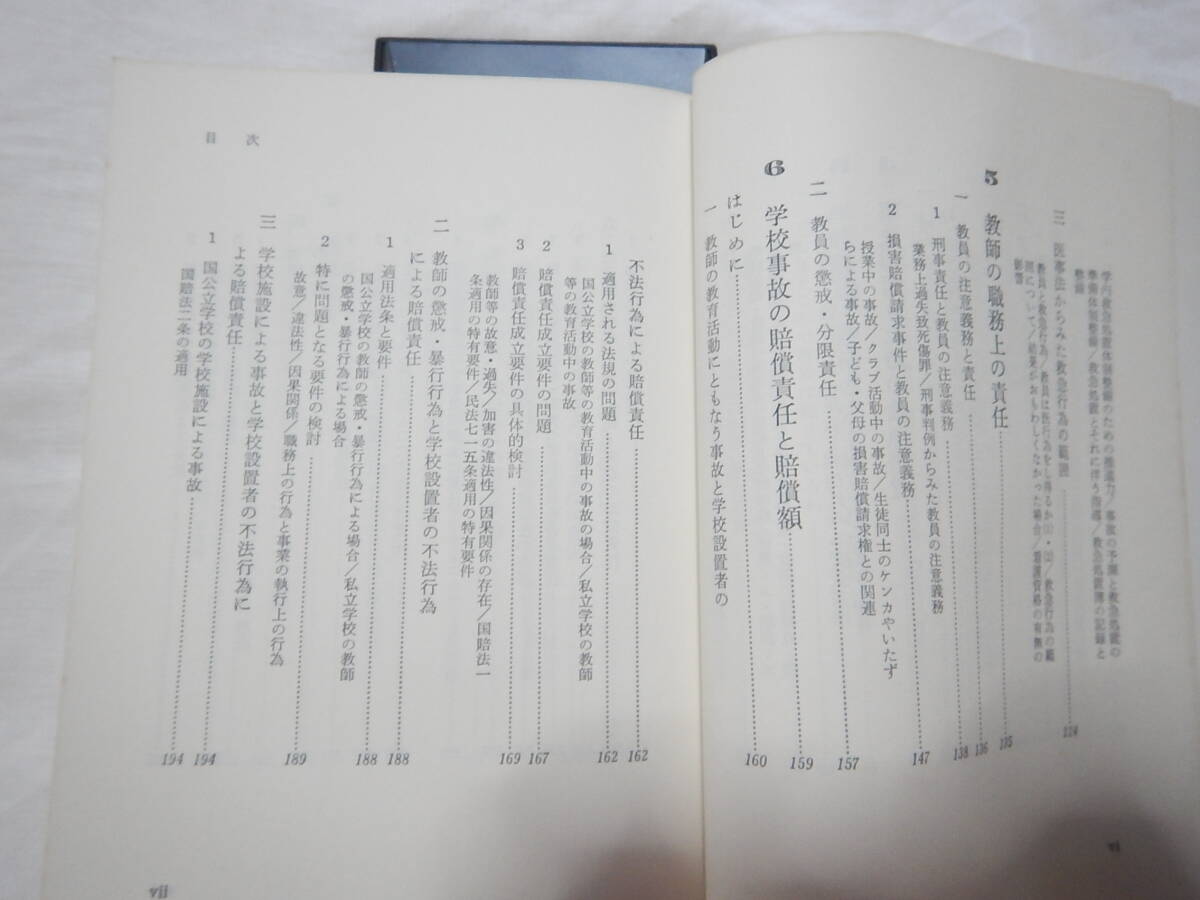 学校救急処置体制整備のための推進力/事故の予測と救急処置の
整備体制整備/救急処置とそれに伴う指導/救急処置簿の記録と
整備
三 医事法からみた救急行為の範囲……224
教員と救急行為/教員は医行為をし得るか(1)・(2)/救急行為の範
囲について/結果がおもわしくなかった場合/看護資格の有無の
影響
5 教師の職務上の責任……135
一 教員の注意義務と責任……136
1 刑事責任と教員の注意義務……138
業務上過失致死傷罪/刑事判例からみた教員の注意義務
2 損害賠償請求事件と教員の注意義務……147
授業中の事故/クラブ活動中の事故/生徒同士のケンカやいたず
らによる事故/子ども・父母の損害賠償請求権との関連
二 教員の懲戒・分限責任……157
6 学校事故の賠償責任と賠償額……159
はじめに……160
一 教師の教育活動にともなう事故と学校設置者の
vi
目次
不法行為による賠償責任……162
1 適用される法規の問題……162
国公立学校の教師等の教育活動中の事故の場合/私立学校の教師
等の教育活動中の事故
2 賠償責任成立要件の問題……167
3 賠償責任成立要件の具体的検討……169
教師等の故意・過失/加害の違法性/因果関係の存在/国賠法一
条適用の特有要件/民法七一五条適用の特有要件
二 教師の懲戒・暴行行為と学校設置者の不法行為
による賠償責任……188
1 適用法条と要件……188
国公立学校の教師の懲戒・暴行行為による場合/私立学校の教師
の懲戒・暴行行為による場合
2 特に問題となる要件の検討……189
故意/違法性/因果関係/職務上の行為と事業の執行上の行為
三 学校施設による事故と学校設置者の不法行為に
よる賠償責任……194
1 国公立学校の学校施設による事故……194
国賠法二条の適用
vii